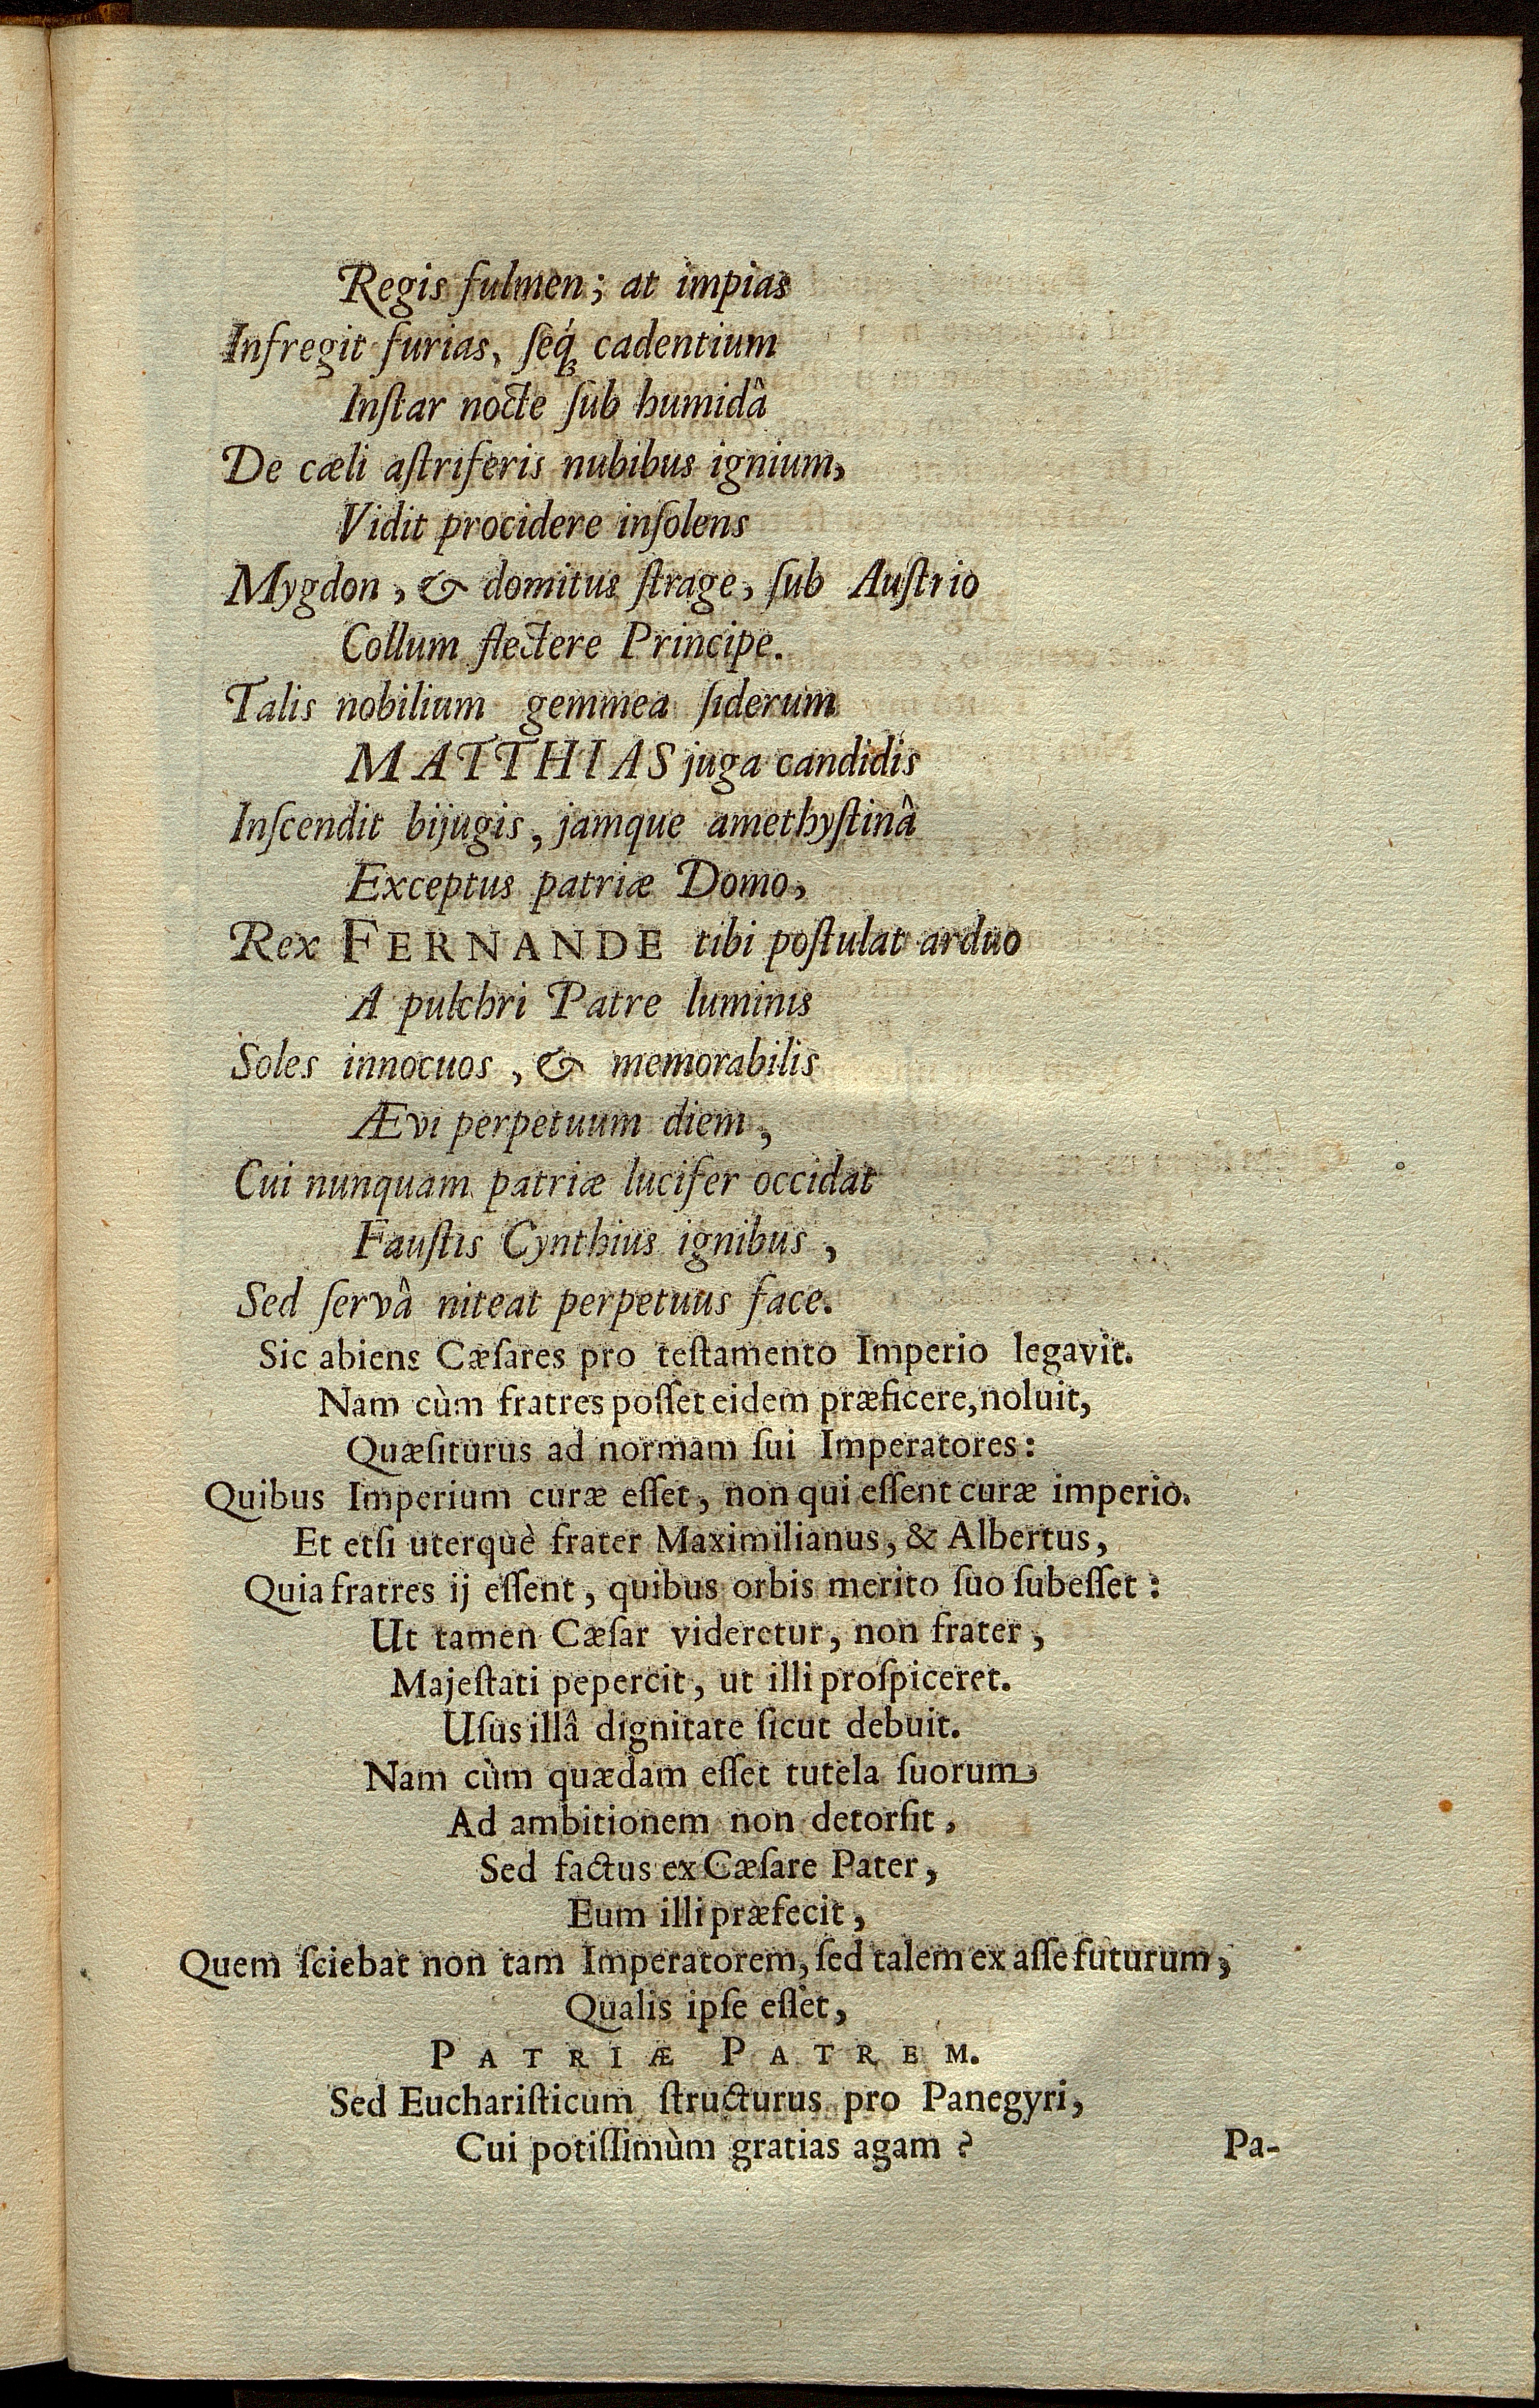 Regis fulmen; at impias
Infregit furias, ſéqꝫ cadentium
Inſtar nocte ſub humidâ
De cæli aſtriferis nubibus ignium,
Vidit procidere inſolens
Mygdon, & domitus ſtrage, ſub Auſtrio
Collum flectere Principe.
Talis nobilium gemmea ſiderum
MATTHIAS juga candidis
Inſcendit bijugis, jamque amethyſtinâ
Exceptus patriæ Domo,
Rex FERNANDE tibi poſtulat arduo
A pulchri Patre luminis
Soles innocuos, & memorabilis
Ævi perpetuum diem,
Cui nunquam patriæ lucifer occidat
Fauſtis Cynthius ignibus,
Sed ſervâ niteat perpetuus face.
Sic abiens Cæſares pro teſtamento Imperio legavit.
Nam cùm fratres poſſet eidem præficere, noluit,
Quæſiturus ad normam ſui Imperatores:
Quibus Imperium curæ eſſet, non qui eſſent curæ imperio.
Et etſi uterquè frater Maximilianus, & Albertus,
Quia fratres ij eſſent, quibus orbis merito ſuo ſubeſſet:
Ut tamen Cæſar videretur, non frater,
Majeſtati pepercit, ut illi proſpiceret.
Uſus illâ dignitate ſicut debuit.
Nam cùm quædam eſſet tutela ſuorum
Ad ambitionem non detorſit,
Sed factus ex Cæſare Pater,
Eum illi præfecit,
Quem ſciebat non tam Imperatorem, ſed talem ex aſſe futurum,
Qualis ipſe eſſet,
PATRIÆ PATREM.
Sed Euchariſticum ſtructurus pro Panegyri,
Cui potiſſimùm gratias agam?
Pa-